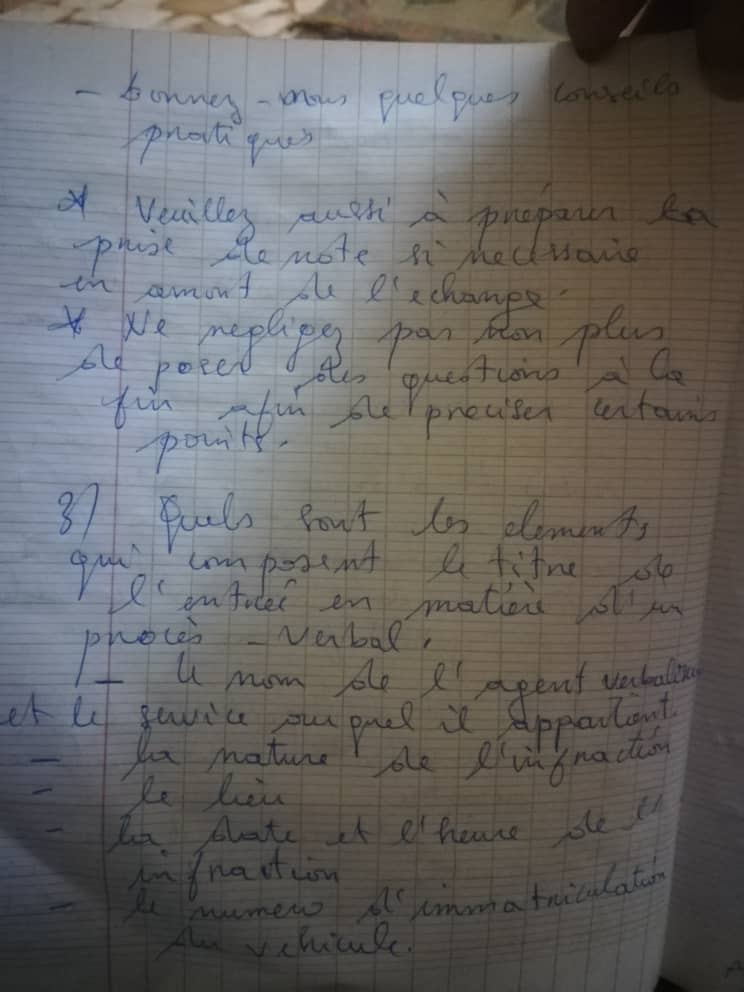 - Donnez-nous quelques conseils
pratiques
* Veuillez aussi à préparer la
prise de note si necessaire
en amont de l'echange.
* Ne negligez pas non plus
de poser des questions à la
fin afin de preciser certains
points.
3/ Quels sont les elements
qui composent le titre de
l'entrée en matière d'un
procès-verbal.
- le nom de l'agent verbalisa
et le service auquel il appartient.
- la nature de l'infraction
- le lieu
- la date et l'heure de l'
infraction
- le numero d'immatriculation
du vehicule.